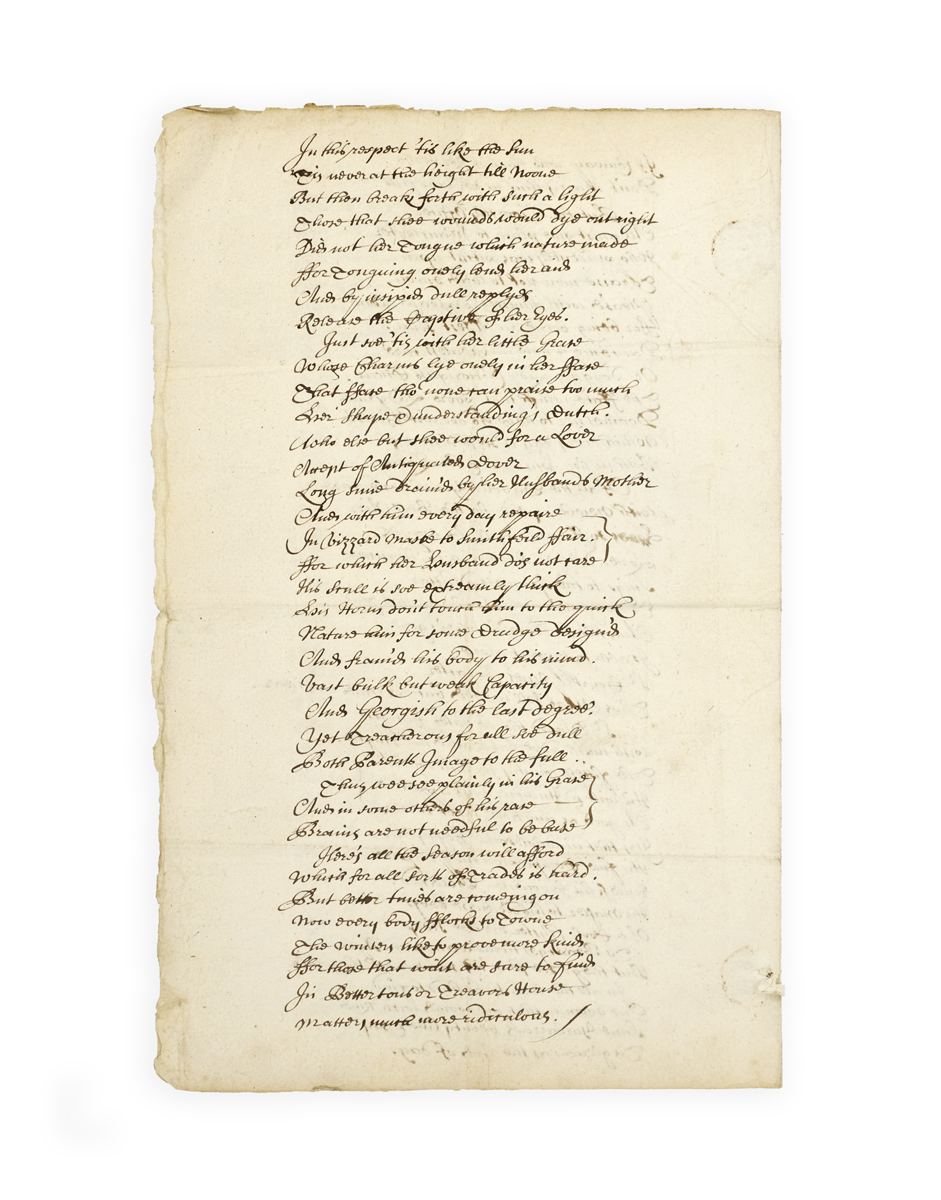 In this respect 'tis like the Sun
Tis never at the height till Noone
But then breaks forth with such a light
Those that shee wounds would dye out right
Did not her Tongue which nature made
ffor Tonguing onely lend her aid
And by insipid dull replyes
Release the Captive of her Eyes.
Just soe 'tis with her little Grace
Whose Charms lye onely in her fface
That fface tho' none can praise too much
Her shape & understanding's Dutch.
Who else but shee would for a Lover
Accept of Antiquated Dover
Long since drain'd by her Husbands Mother
And with him every day repaire
In Vizzard Maske to Smithfeild ffair.
ffor which her Husband do's not care
His scull is soe extreamly thick
His Horns don't touch him to the quick
Nature him for some Drudge design'd
And fram'd his body to his mind.
Vast bulk but weak Capacity
And Georgish to the last degree.
Yet Treacherous for all soe dull
Both Parents Image to the full.
Thus wee see plainly in his Grace
And in some others of his race
Brains are not needful to be base
Here's all the Season will afford
Which for all sorts of Trades is hard.
But better times are comeing on
Now every body fflocks to Towne
The Winters like to prove more kind
ffor those that want are sure to find
In Bettertons or Treavors House
Matters much more ridiculous.